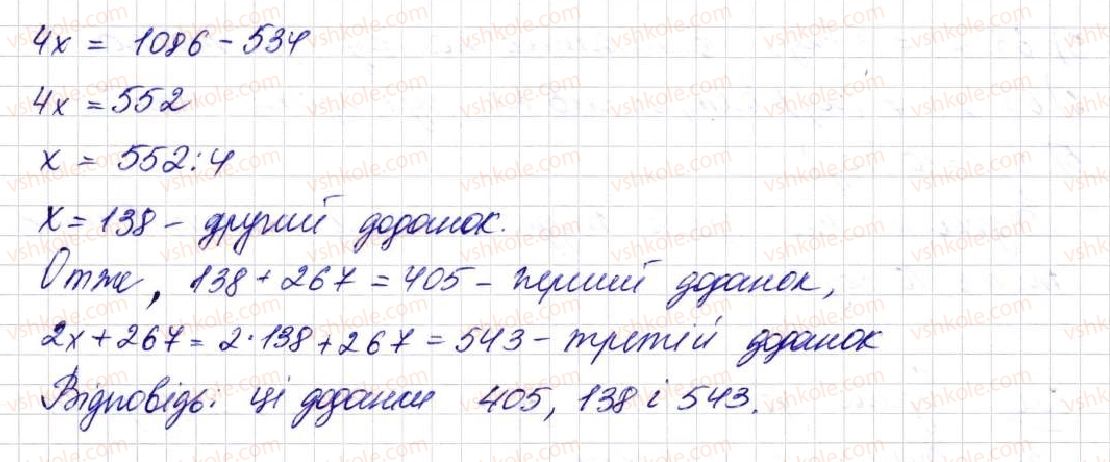 4x = 1086 - 534
4x = 552
x = 552 : 4
x = 138 - другий доданок.
Отже, 138 + 267 = 405 - перший доданок,
2x + 267 = 2 · 138 + 267 = 543 - третій доданок
Відповідь: ці доданки 405, 138 і 543.